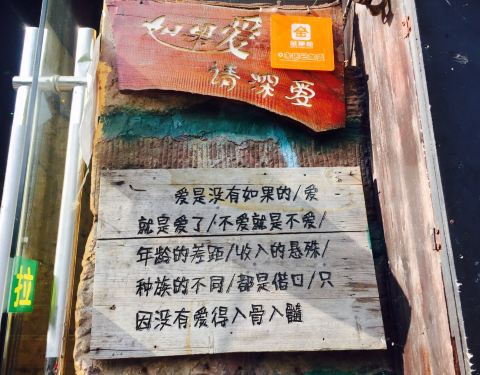 如果爱
请深爱
爱是没有如果的/爱
就是爱了/不爱就是不爱/
年龄的差距/收入的悬殊/
种族的不同/都是借口/只
因没有爱得入骨入髓
拉